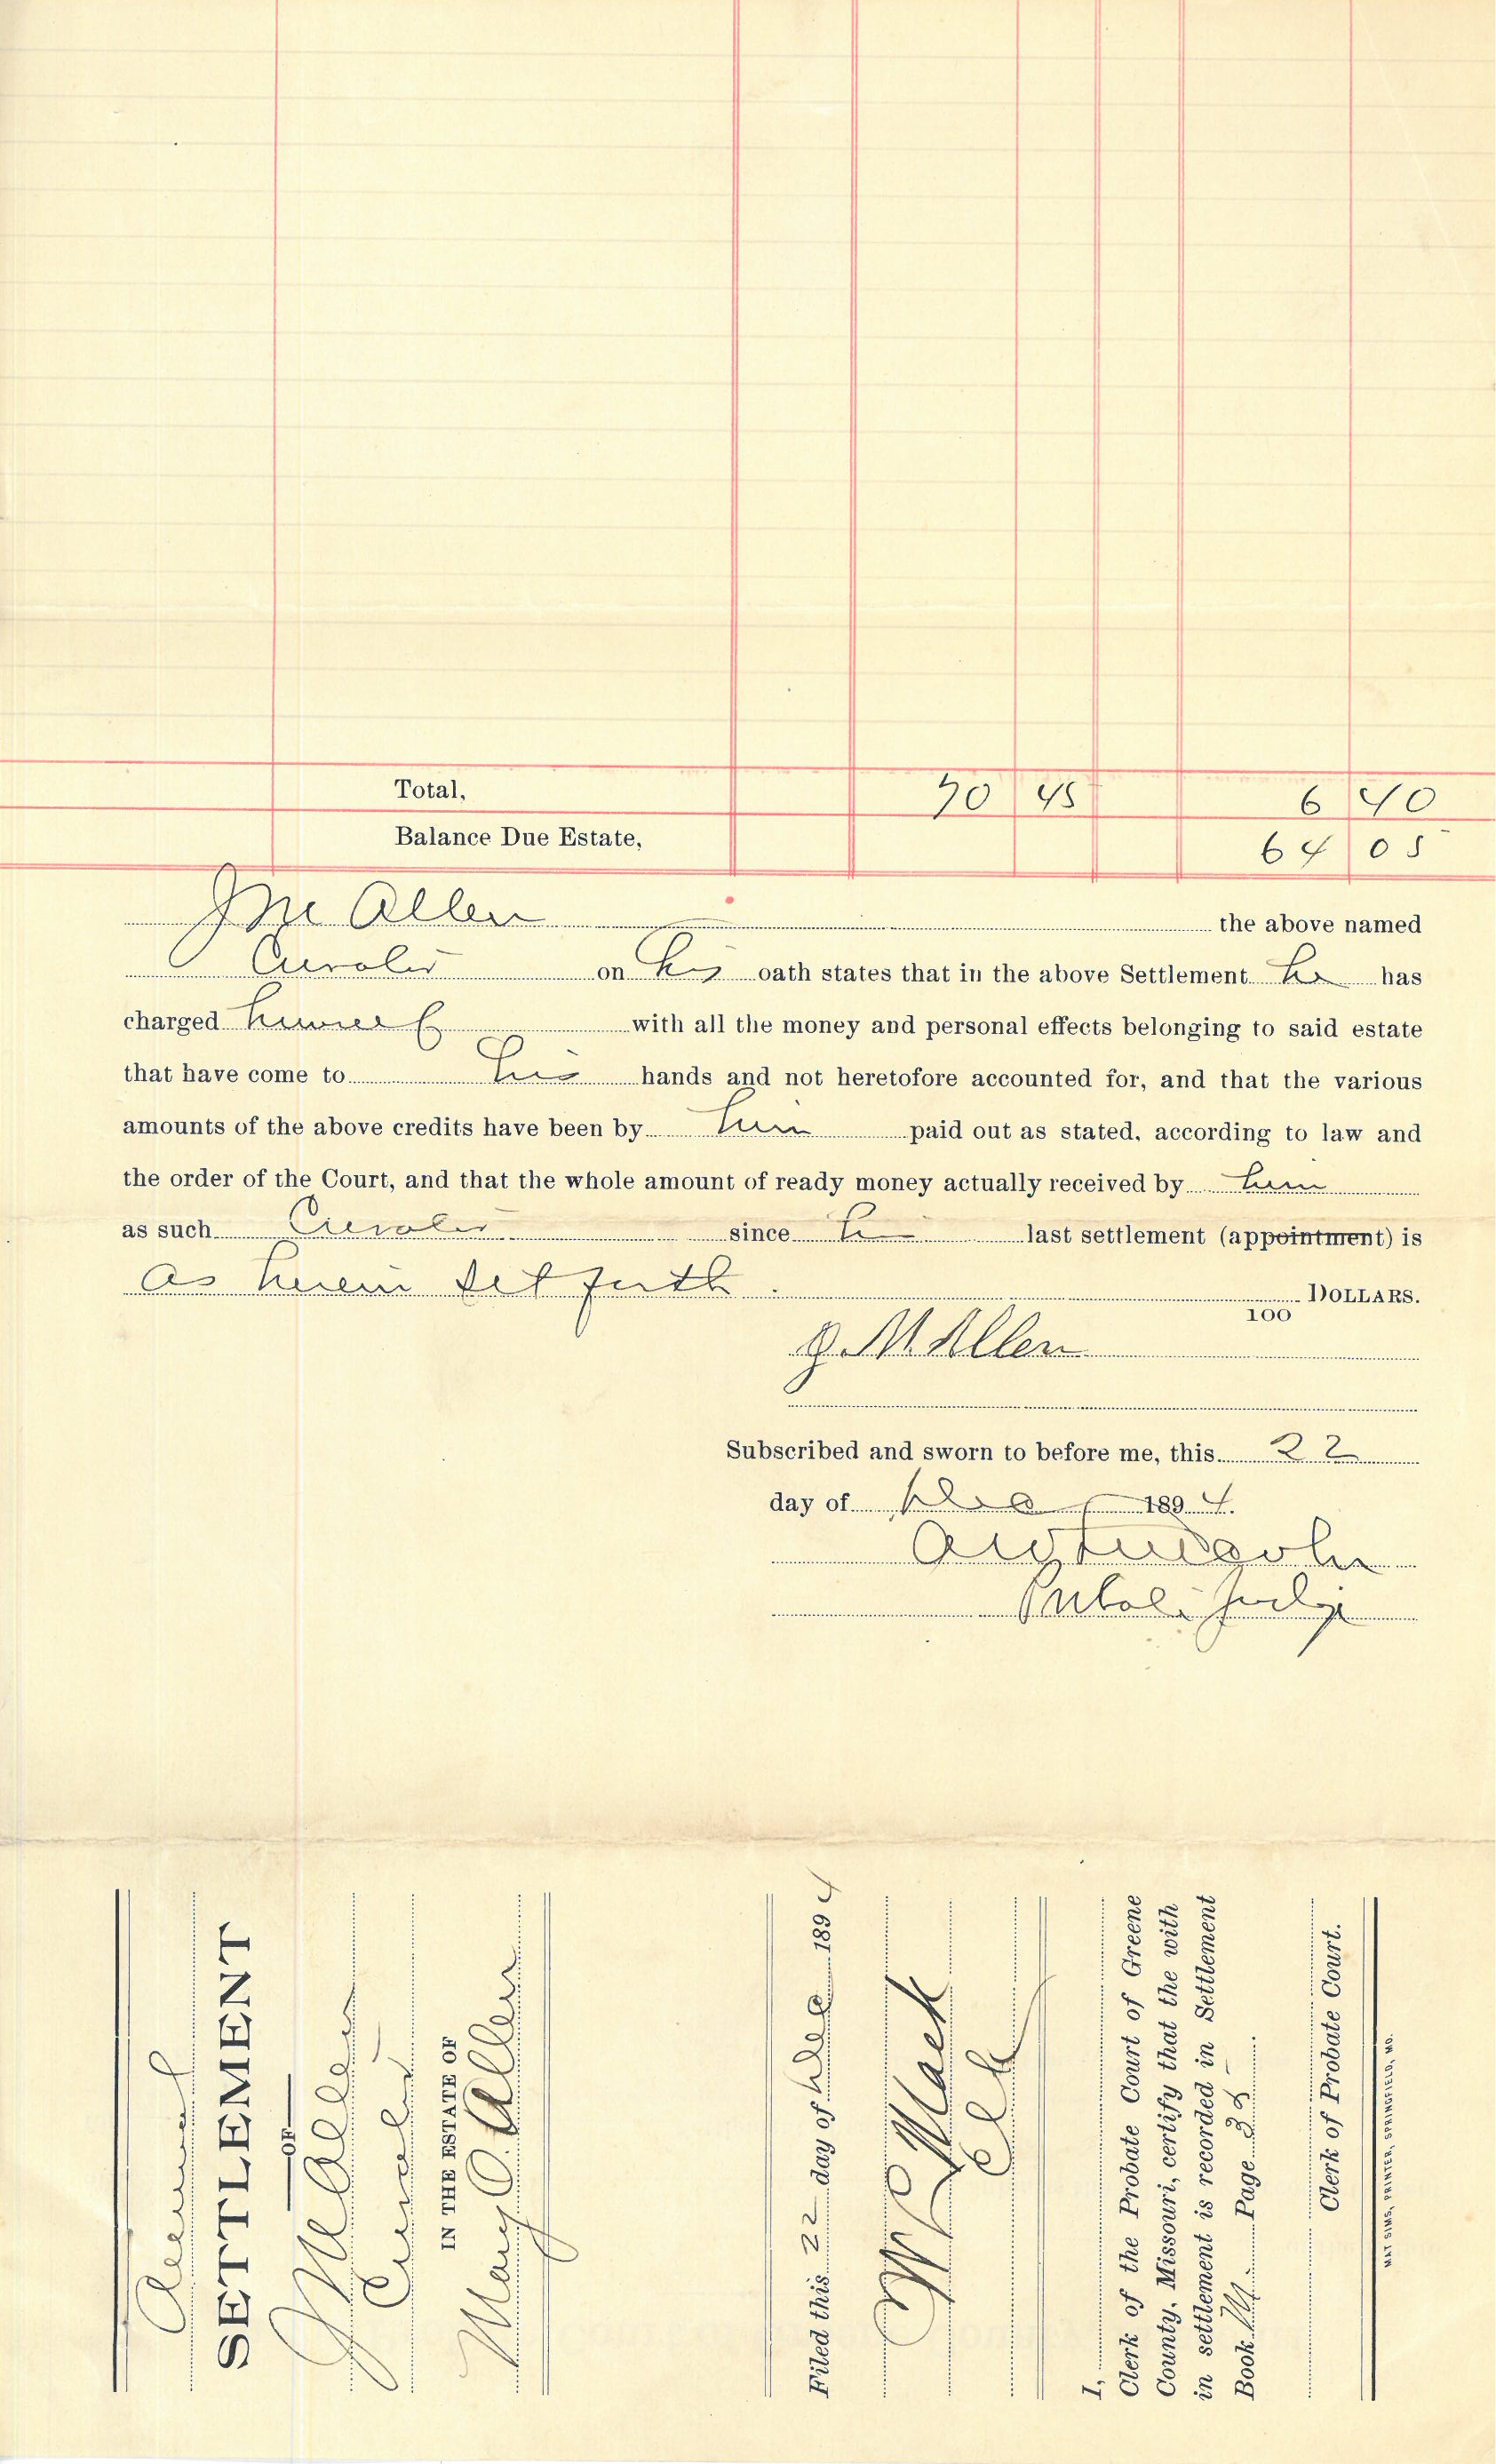 Total, 70 45 6 40
Balance Due Estate, 64 05
J M Allen the above named
Curator on his oath states that in the above Settlement he has
charged himself with all the money and personal effects belonging to said estate
that have come to his hands and not heretofore accounted for, and that the various
amounts of the above credits have been by him paid out as stated, according to law and
the order of the Court, and that the whole amount of ready money actually received by him
as such Curator since his last settlement (appointment) is
as herein set forth DOLLARS.
100
J. M. Allen
Subscribed and sworn to before me, this 22
day of Dec 1894.
Probate Judge
Annual
SETTLEMENT
OF
J M Allen
Curator
IN THE ESTATE OF
Mary O. Allen
Filed this 22 day of Dec 1894
Mack
Clk
I,
Clerk of the Probate Court of Greene
County, Missouri, certify that the with
in settlement is recorded in Settlement
Book M Page 35
Clerk of Probate Court.
MAT SIMS, PRINTER, SPRINGFIELD, MO.